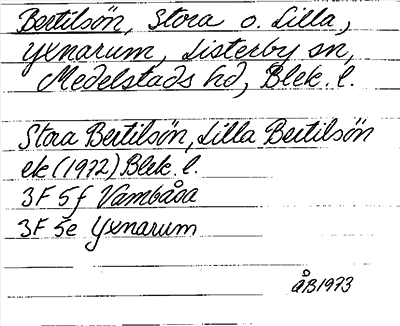 Bertilsön, Stora o. Lilla,
Yxnarum, Listerby sn,
Medelstads hd, Blek. l.
Stora Bertilsön, Lilla Bertilsön
ek (1972) Blek. l.
3F 5f Vambåsa
3F 5e Yxnarum
ÅB1973